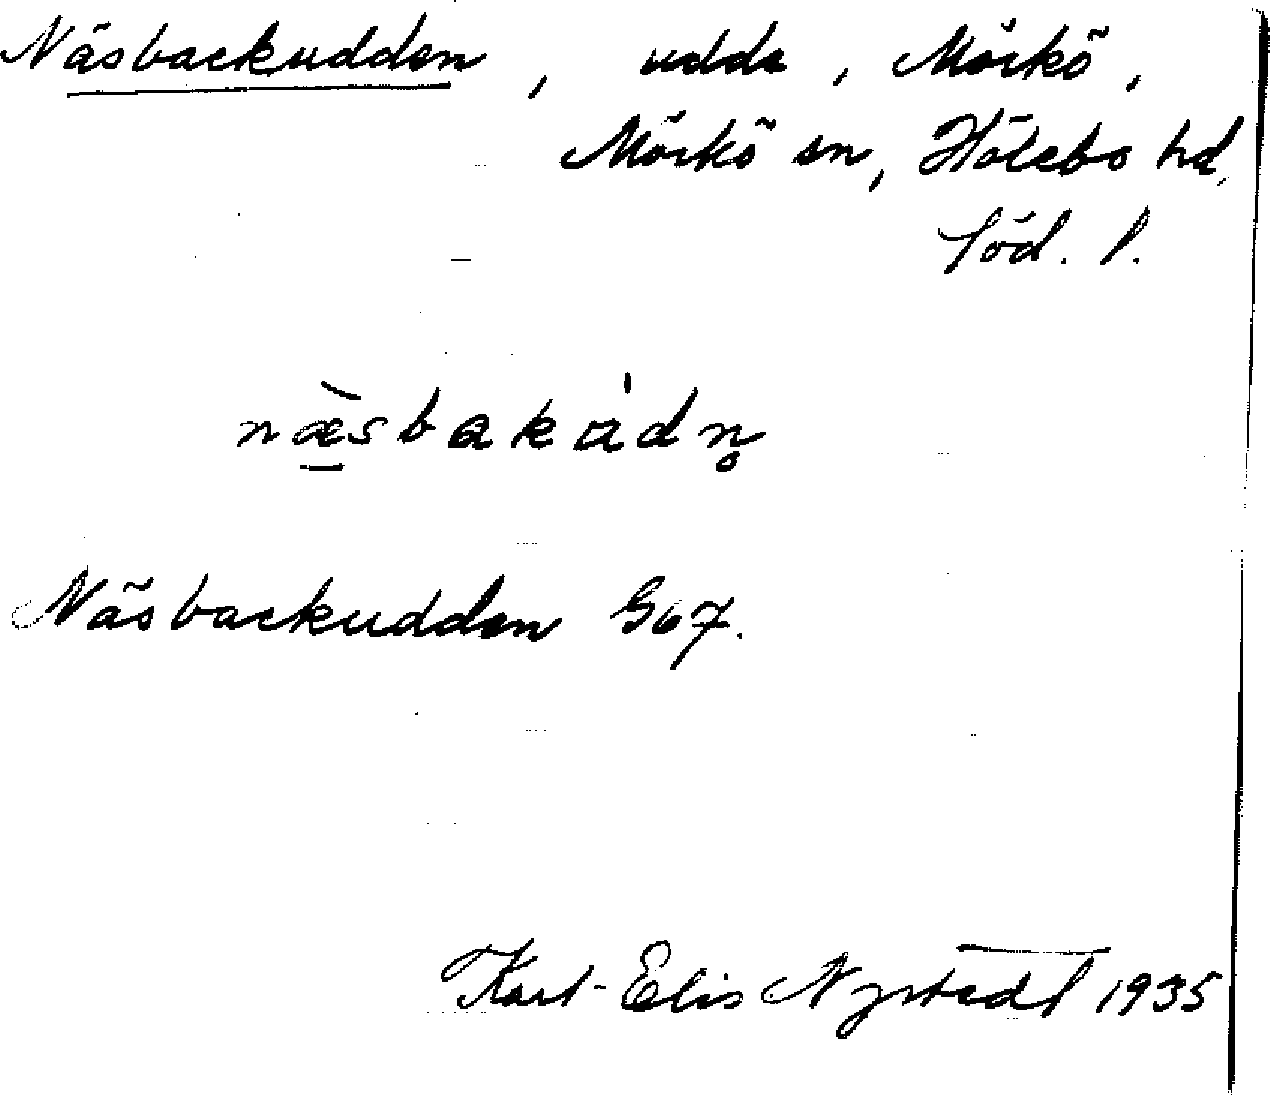 Näsbackudden, udde, Mörkö,
Mörkö sn, Hölebo hd,
Söd. l.
næ̀sbakadn̥
Näsbackudden G67.
Karl-Elis Nystedt 1935